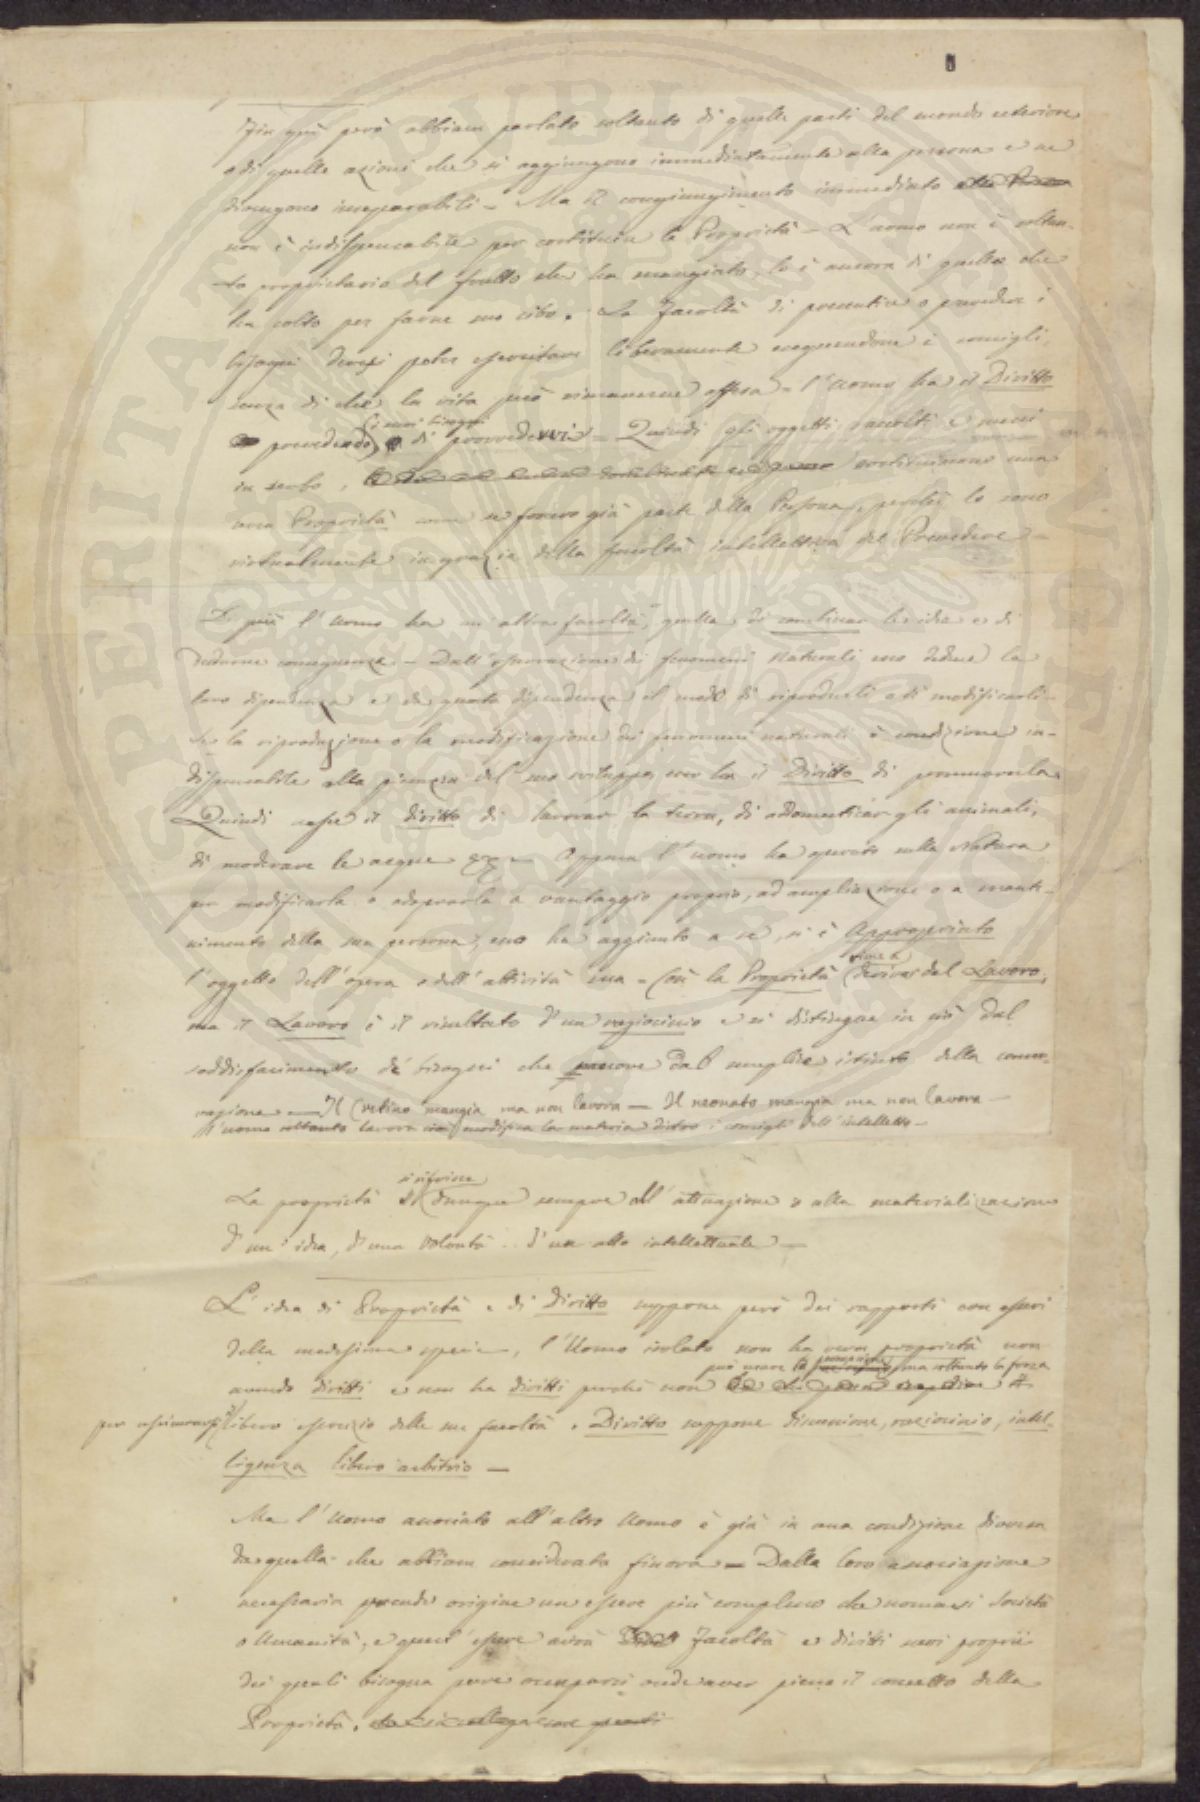 Fin quì però abbiam parlato soltanto di quelle parti del mondo esteriore
o di quelle azioni che si aggiungono immediatamente alla persona e ne
divengono inseparabili – Ma il congiungimento immediato alla Persona
non è indispensabile per costituire la Proprietà – L'uomo non è soltan-
to proprietario del frutto che ha mangiato, lo è ancora di quello che
ha colto per farne suo cibo. La Facoltà di presentire o prevedere i
bisogni devesi poter esercitare liberamente eseguendone i consigli,
senza di che la vita può rimanerne offesa – l'Uomo ha il Diritto
prevedendo i suoi bisogni di provvedervi – Quindi gli oggetti raccolti e messi
in serbo, costituiscono una
vera Proprietà come se fossero già parte della Persona, perchè lo sono
virtualmente in grazia della facoltà intellettiva del Prevedere –
Di più l'Uomo ha un'altra facoltà, quella di combinar le idee e di
dedurne conseguenze – Dall'osservazione dei fenomeni naturali esso deduce la
loro dipendenza e da questa dipendenza il modo di riprodurli o di modificarli –
Se la riproduzione o la modificazione dei fenomeni naturali è condizione in-
dispensabile alla pienezza del suo sviluppo, esso ha il Diritto di promuoverla
Quindi nasce il diritto di lavorar la terra, di addomesticar gli animali,
di moderare le acque – Appena l'uomo ha operato sulla Natura
per modificarla o adoprarla a vantaggio proprio, ad ampliazione o a mante-
nimento della sua persona, esso ha aggiunto a se, si è Appropriato
l'oggetto dell'opera o dell'attività sua – Così la Proprietà deriva dal Lavoro,
ma il Lavoro è il risultato d'un raziocinio e si distingue in ciò dal
soddisfacimento de' bisogni che muove dal semplice istinto della conser-
vazione – Il Cretino mangia ma non lavora – Il neonato mangia ma non lavora –
l'uomo soltanto lavora cioè modifica la materia dietro i consigli dell'intelletto –
La proprietà si riferisce dunque sempre all'attuazione o alla materializzazione
d'un'idea, d'una volontà d'un atto intellettuale –
L'idea di Proprietà e di Diritto suppone però dei rapporti con esseri
della medesima specie, l'Uomo isolato non ha vera proprietà non
avendo diritti e non ha diritti perchè non può avere la ma soltanto la forza
per assicurarsi il libero esercizio delle sue facoltà. Diritto suppone discussione, raziocinio, intel-
ligenza libero arbitrio –
Ma l'Uomo associato all'altro Uomo è già in una condizione diversa
da quella che abbiam considerata finora – Dalla loro associazione
necessaria prende origine un essere più complesso che nomasi Società
o Umanità, e quest'essere avrà Facoltà e diritti suoi proprii
dei quali bisogna pure occuparsi onde aver pieno il concetto della
Proprietà.